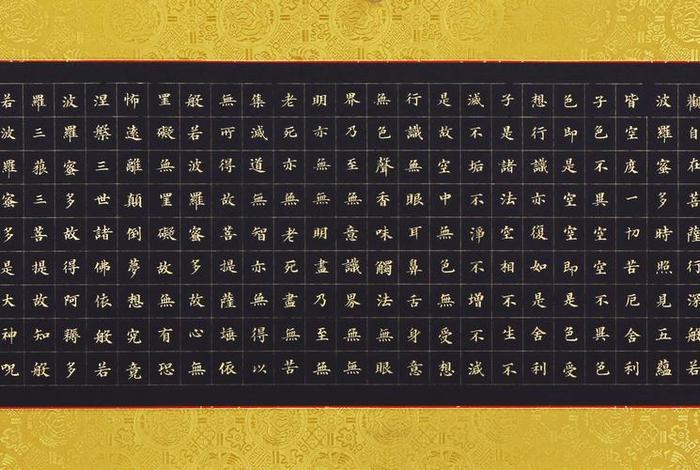 觀自在菩薩行深般若
波羅蜜多時照見五蘊
皆空度一切苦厄舍利
子色不異空空不異色
色即是空空即是色受
想行識亦復如是舍利
子是諸法空相不生不
滅不垢不淨不增不滅
是故空中無色無受想
行識無眼耳鼻舌身意
無色聲香味觸法無眼
界乃至無意識界無無
明亦無無明盡乃至無
老死亦無老死盡無苦
集滅道無智亦無得以
無可得故菩提薩埵依
般若波羅蜜多故心無
罣礙無罣礙故無有恐
怖遠離顛倒夢想究竟
涅槃三世諸佛依般若
波羅蜜多故得阿耨多
羅三藐三菩提故知般
若波羅蜜多是大神呪